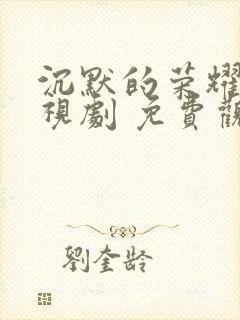 沉默的荣耀
視劇 免費觀
劉奎龄